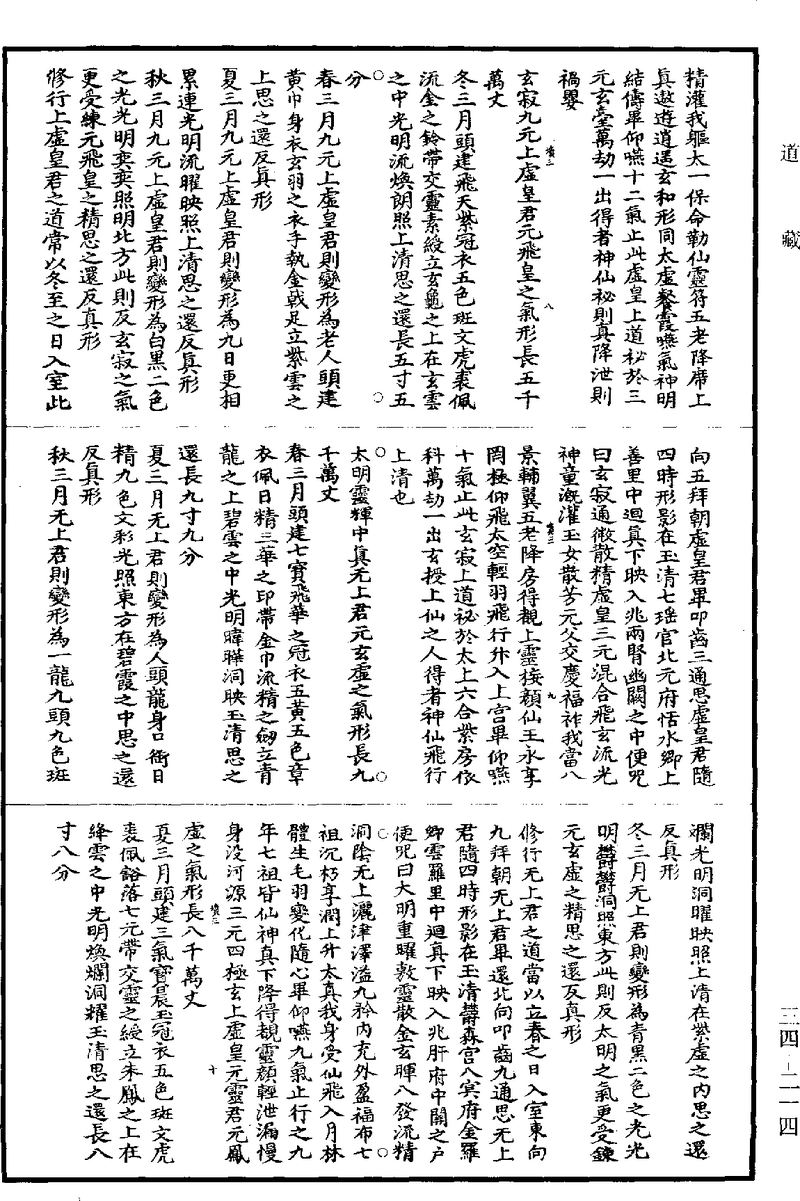 道藏
精灌我軀太一保命勒仙靈符五老降席上
真遨遊逍遙玄和形同太虛餐霞嚥氣神明
結儔畢仰嚥十二氣止此虛皇上道祕於三
元玄臺萬劫一出得者神仙祕則真降泄則
禍嬰
玄寂九元上虛皇君元飛皇之氣形長五千
萬丈
冬三月頭建飛天紫冠衣五色斑文虎裘佩
流金之鈴帶交靈素綬立玄龜之上在玄雲
之中光明流煥朗照上清思之還長五寸五
分
春三月九元上虛皇君則變形為老人頭建
黃巾身衣玄羽之衣手執金戟足立紫雲之
上思之還反真形
夏三月九元上虛皇君則變形為九日更相
累連光明流曜映照上清思之還反真形
秋三月九元上虛皇君則變形為白黑二色
之光光明奕奕照明北方此則反玄寂之氣
更受練元飛皇之精思之還反真形
修行上虛皇君之道常以冬至之日入室北
向五拜朝虛皇君畢叩齒三通思虛皇君隨
四時形影在玉清七瑤宮北元府恬水鄉上
善里中迴真下映入兆兩腎幽闕之中便咒
曰玄寂通微散精虛皇三元混合飛玄流光
神童溉灌玉女散芳元父交慶福祚我當八
景輔翼五老降房得覩上靈接顏仙王永享
罔極仰飛太空輕羽飛行升入上宮畢仰嚥
十氣止此玄寂上道祕於太上六合紫房依
科萬劫一出玄授上仙之人得者神仙飛行
上清也
太明靈輝中真无上君元玄虛之氣形長九
千萬丈
春三月頭建七寶飛華之冠衣五黃五色章
衣佩日精三華之印帶金巾流精之劒立青
龍之上碧雲之中光明暐曄洞映玉清思之
還長九寸九分
夏三月无上君則變形為人頭龍身口銜日
精九色文彩光照東方在碧霞之中思之還
反真形
秋三月无上君則變形為一龍九頭九色斑
斕光明洞曜映照上清在紫虛之內思之還
反真形
冬三月无上君則變形為青黑二色之光光
明鬱鬱洞照東方此則反太明之氣更受鍊
元玄虛之精思之還反真形
修行无上君之道當以立春之日入室東向
九拜朝无上君畢還北向叩齒九通思无上
君隨四時形影在玉清鬱森宮八冥府金羅
鄉雲羅里中迴真下映入兆肝府中關之戶
便咒曰大明重曜敷靈散金玄暉八發流精
洞陰无上灑津澤溢九衿內充外盈福布七
祖沉朽享潤上升太真我身受仙飛入月林
體生毛羽變化隨心畢仰嚥九氣止行之九
年七祖皆仙神真下降得覩靈顏輕泄漏慢
身没河源三元四極玄上虛皇元靈君元鳳
虛之氣形長八千萬丈
夏三月頭建三氣寶晨玉冠衣五色斑文虎
裘佩豁落七元帶交靈之綬立朱鳳之上在
絳雲之中光明煥爛洞耀玉清思之還長八
寸八分
三四-二一四